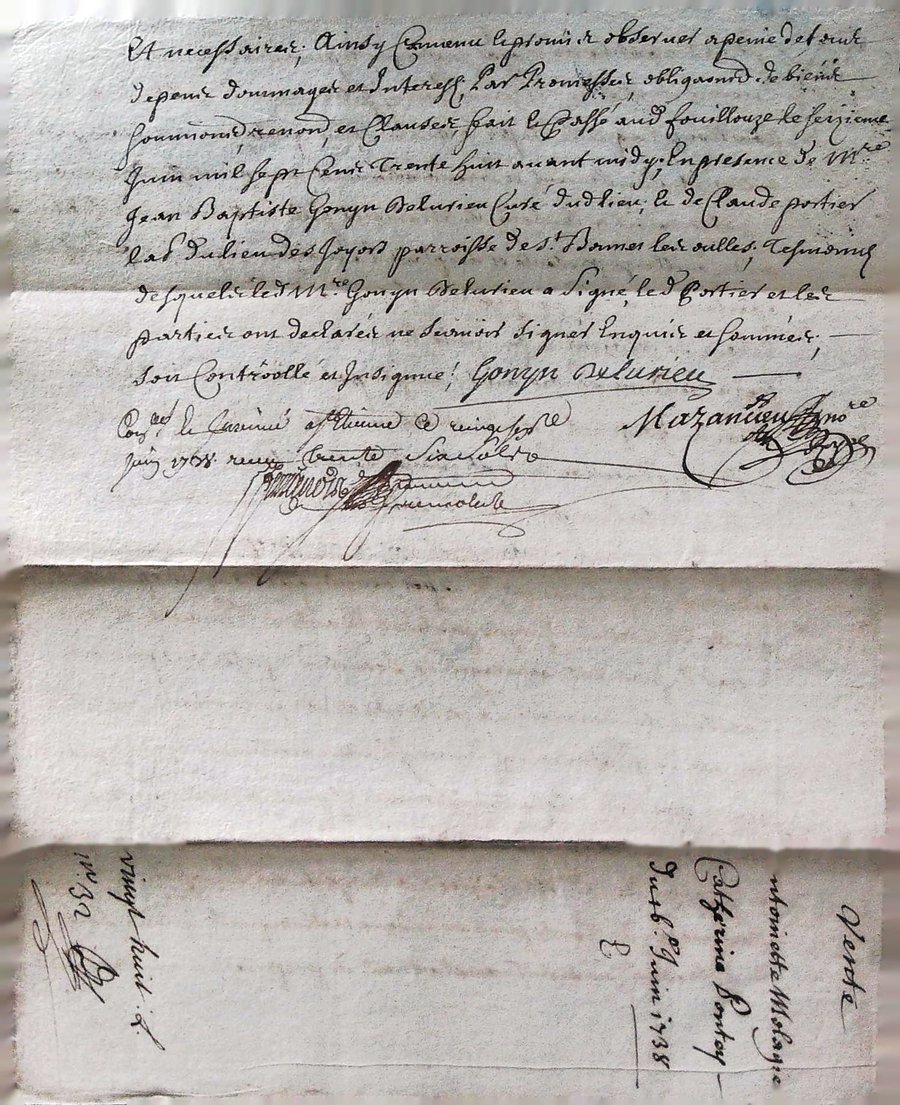 Et necessaires, Ainsy Convenu et promis observer a peine de tous
depens dommages et Interest, Par Promesses, obligaons de biens
soumons, renons, et Clauses, fait et Passé aud fouillouze le seizieme
Juin mil sept Cens Trente huit avant midy, En presence de Mre
Jean Baptiste Gonyn Delurieu Curé dudlieu, et de Claude portier
lab du lieu des Joyort parroisse de St Bonnet les oulles, Tesmoins
desquels led Mre Gonyn Delurieu a Signé, led Portier et les
parties ont declarés ne Scavoir Signer Enquis et sommés,
soit Controollé et Insignué, Gonyn Delurieu
Mazancieu no re
Con et a St Etienne le vingt
Juin 1738 receu trente Six Sols
Vente
Molagne
Catherine Pontoy
Du 16e Juin 1738
vingt huit L
No. 32